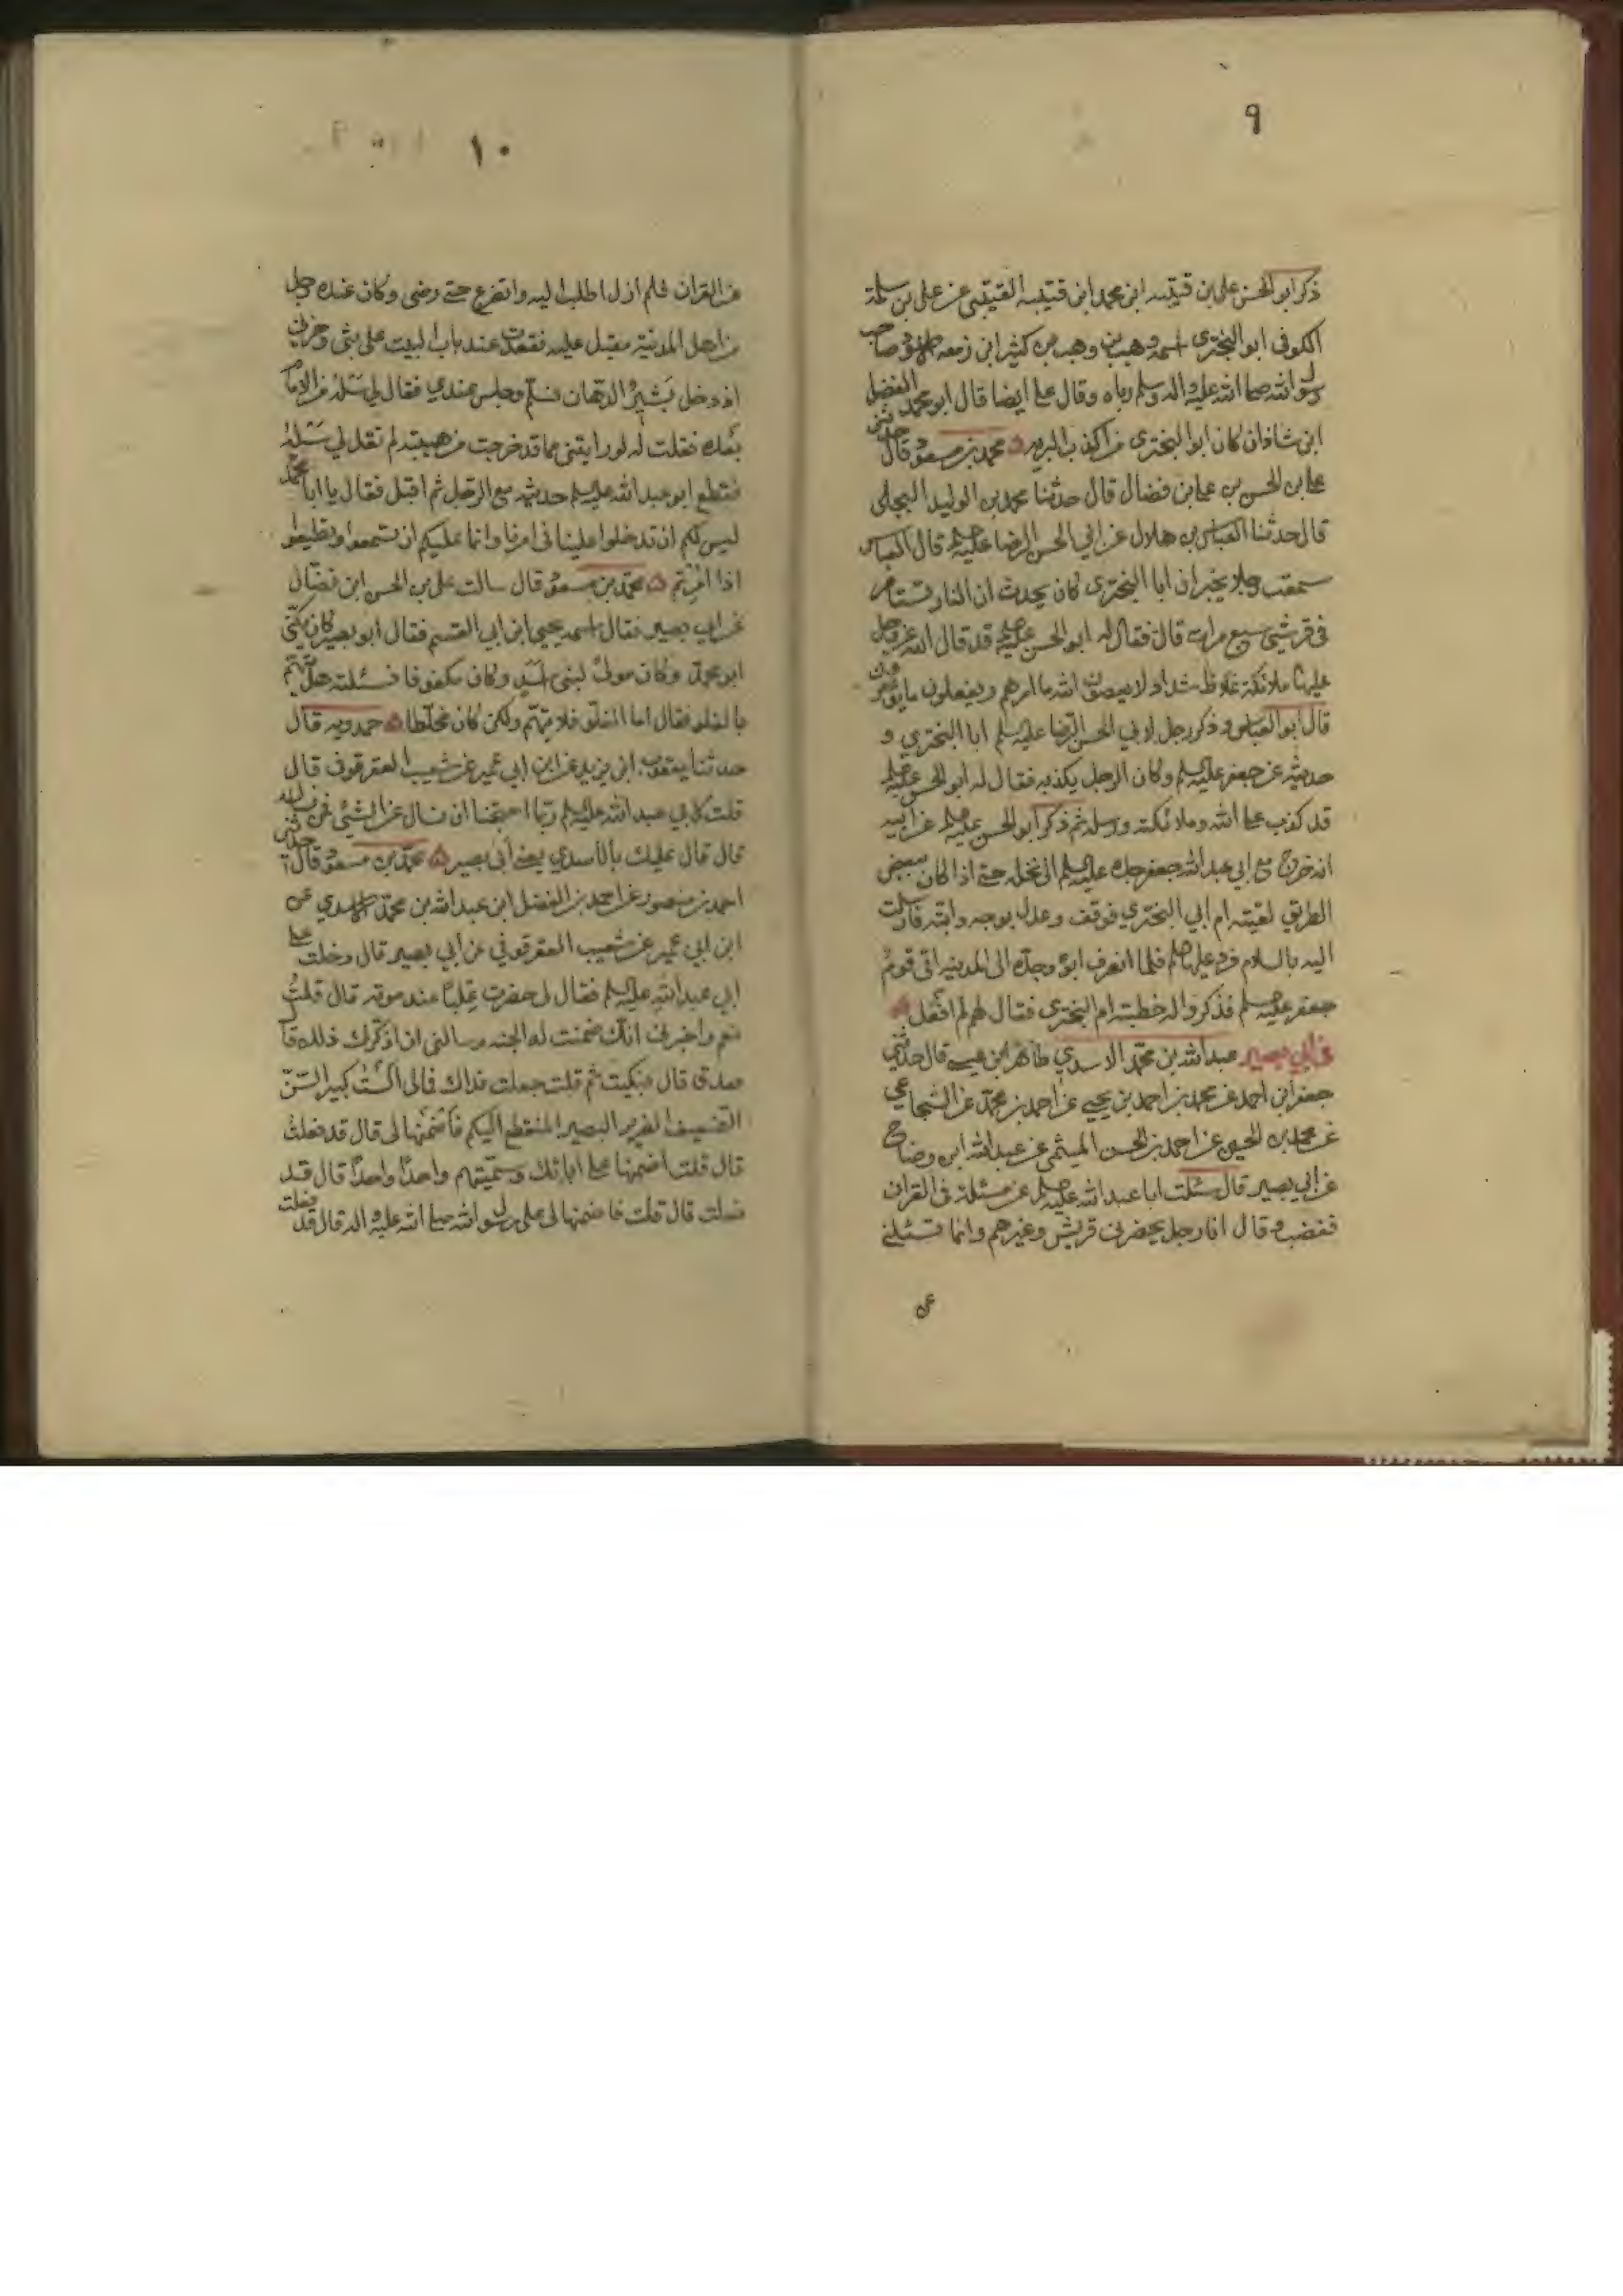 ٩
ذكر ابو الحسن على بن قتيبه ابن محمد ابن قتيبه القتيبى عن على بن سلمة
الكوفى ابو البخترى اسمه وهب بن وهب بن كثير ابن زمعه صاحب
رسول الله صلى الله عليه واله وسلم رباه وقال على ايضا قال ابو محمد الفضل
ابن شاذان كان ابو البخترى من اكذب البريه محمد بن مسعود قال حدثنى
على بن الحسن بن على بن فضال قال حدثنا محمد بن الوليد البجلى
قال حدثنا العباس بن هلال عن ابي الحسن الرضا عليه قال العباس
سمعت رجلا يخبر ان ابا البخترى كان يحدث ان النار تستامر
فى قرشى سبع مرات قال فقال له ابو الحسن عليه قد قال الله عز وجل
عليها ملائكة غلاظ شداد لا يعصون الله ما امرهم ويفعلون ما يؤمرون
قال ابو العباس وذكر رجل لابي الحسن الرضا عليه السلم ابا البختري و
حديثه عن جعفر عليه السلم وكان الرجل يكذبه فقال له ابو الحسن عليه
قد كذب على الله وملائكته ورسله ثم ذكر ابو الحسن عليه عن ابيه
انه خرج مع ابي عبد الله جعفر جده عليه السلم الى نخله حتى اذا كان ببعض
الطريق لقيته ام ابي البختري فوقف وعدل بوجه دابته فارسلت
اليه بالسلام فرد عليها فلما انصرف ابوه وجده الى المدينه اتى قوم
جعفر عليه فذكروا له خطبته ام البخترى فقال لهم لم افعل
فى ابي بصير عبد الله بن محمد الاسدي طاهر ابن عيسى قال حدثني
جعفر ابن احمد عن محمد بن احمد بن يحيى عن احمد بن محمد عن الشجاعي
عن محمد بن الحسين عن احمد بن الحسن الميثمى عن عبد الله ابن وضاح
عن ابي بصير قال سئلت ابا عبد الله عليه عن مسئلة فى القران
فغضب وقال انا رجل يحضرنى قريش وغيرهم وانما تسئلنى
عن
١٠
عن القران فلم ازل اطلب اليه واتضرع حتى رضى وكان عنده رجل
من اهل المدينة مقبل عليه فقعدت عند باب البيت على بثى وحزنى
اذ دخل بشير الدهان فسلم وجلس عندي فقال لي سله من الامام
بعده فقلت له لو رايتنى مما قد خرجت من هيبته لم تقل لي سله
فقطع ابو عبد الله عليه السلم حديثه مع الرجل ثم اقبل فقال يا ابا محمد
ليس لكم ان تدخلوا علينا فى امرنا وانما عليكم ان تسمعوا وتطيعوا
اذا امرتم محمد بن مسعود قال سالت على بن الحسن ابن فضال
عن ابي بصير فقال اسمه يحيى ابن ابي القسم فقال ابو بصير كان يكنى
ابو محمد وكان مولى لبنى اسد وكان مكفوفا فسئلته هل يتهم
بالغلو فقال اما الغلو فلا يتهم ولكن كان مخلطا حمدويه قال
حدثنا يعقوب ابن يزيد عن ابن ابي عمير عن شعيب العقرقوفى قال
قلت لابي عبد الله عليه السلم ربما احتجنا ان نسال عن الشئ فمن نسأله
قال قال عليك بالاسدي يعنى ابى بصير محمد بن مسعود قال حدثنى
احمد بن منصور عن احمد بن الفضل ابن عبد الله بن محمد الاسدي عن
ابن ابي عمير عن شعيب العقرقوفي عن ابي بصير قال دخلت على
ابي عبد الله عليه السلم فقال لى حضرت علبا عند موته قال قلت
نعم واخبرنى انك ضمنت له الجنه وسالنى ان اذكرك ذلك قا
صدق قال فبكيت ثم قلت جعلت فداك فمالى الست كبير السن
الضعيف الضرير البصير المنقطع اليكم فاضمنها لى قال قد فعلت
قال قلت اضمنها على ابائك وسميتهم واحدا واحدا قال قد
فعلت قال قلت فاضمنها لى على رسول الله صلى الله عليه واله قال قد فعلت